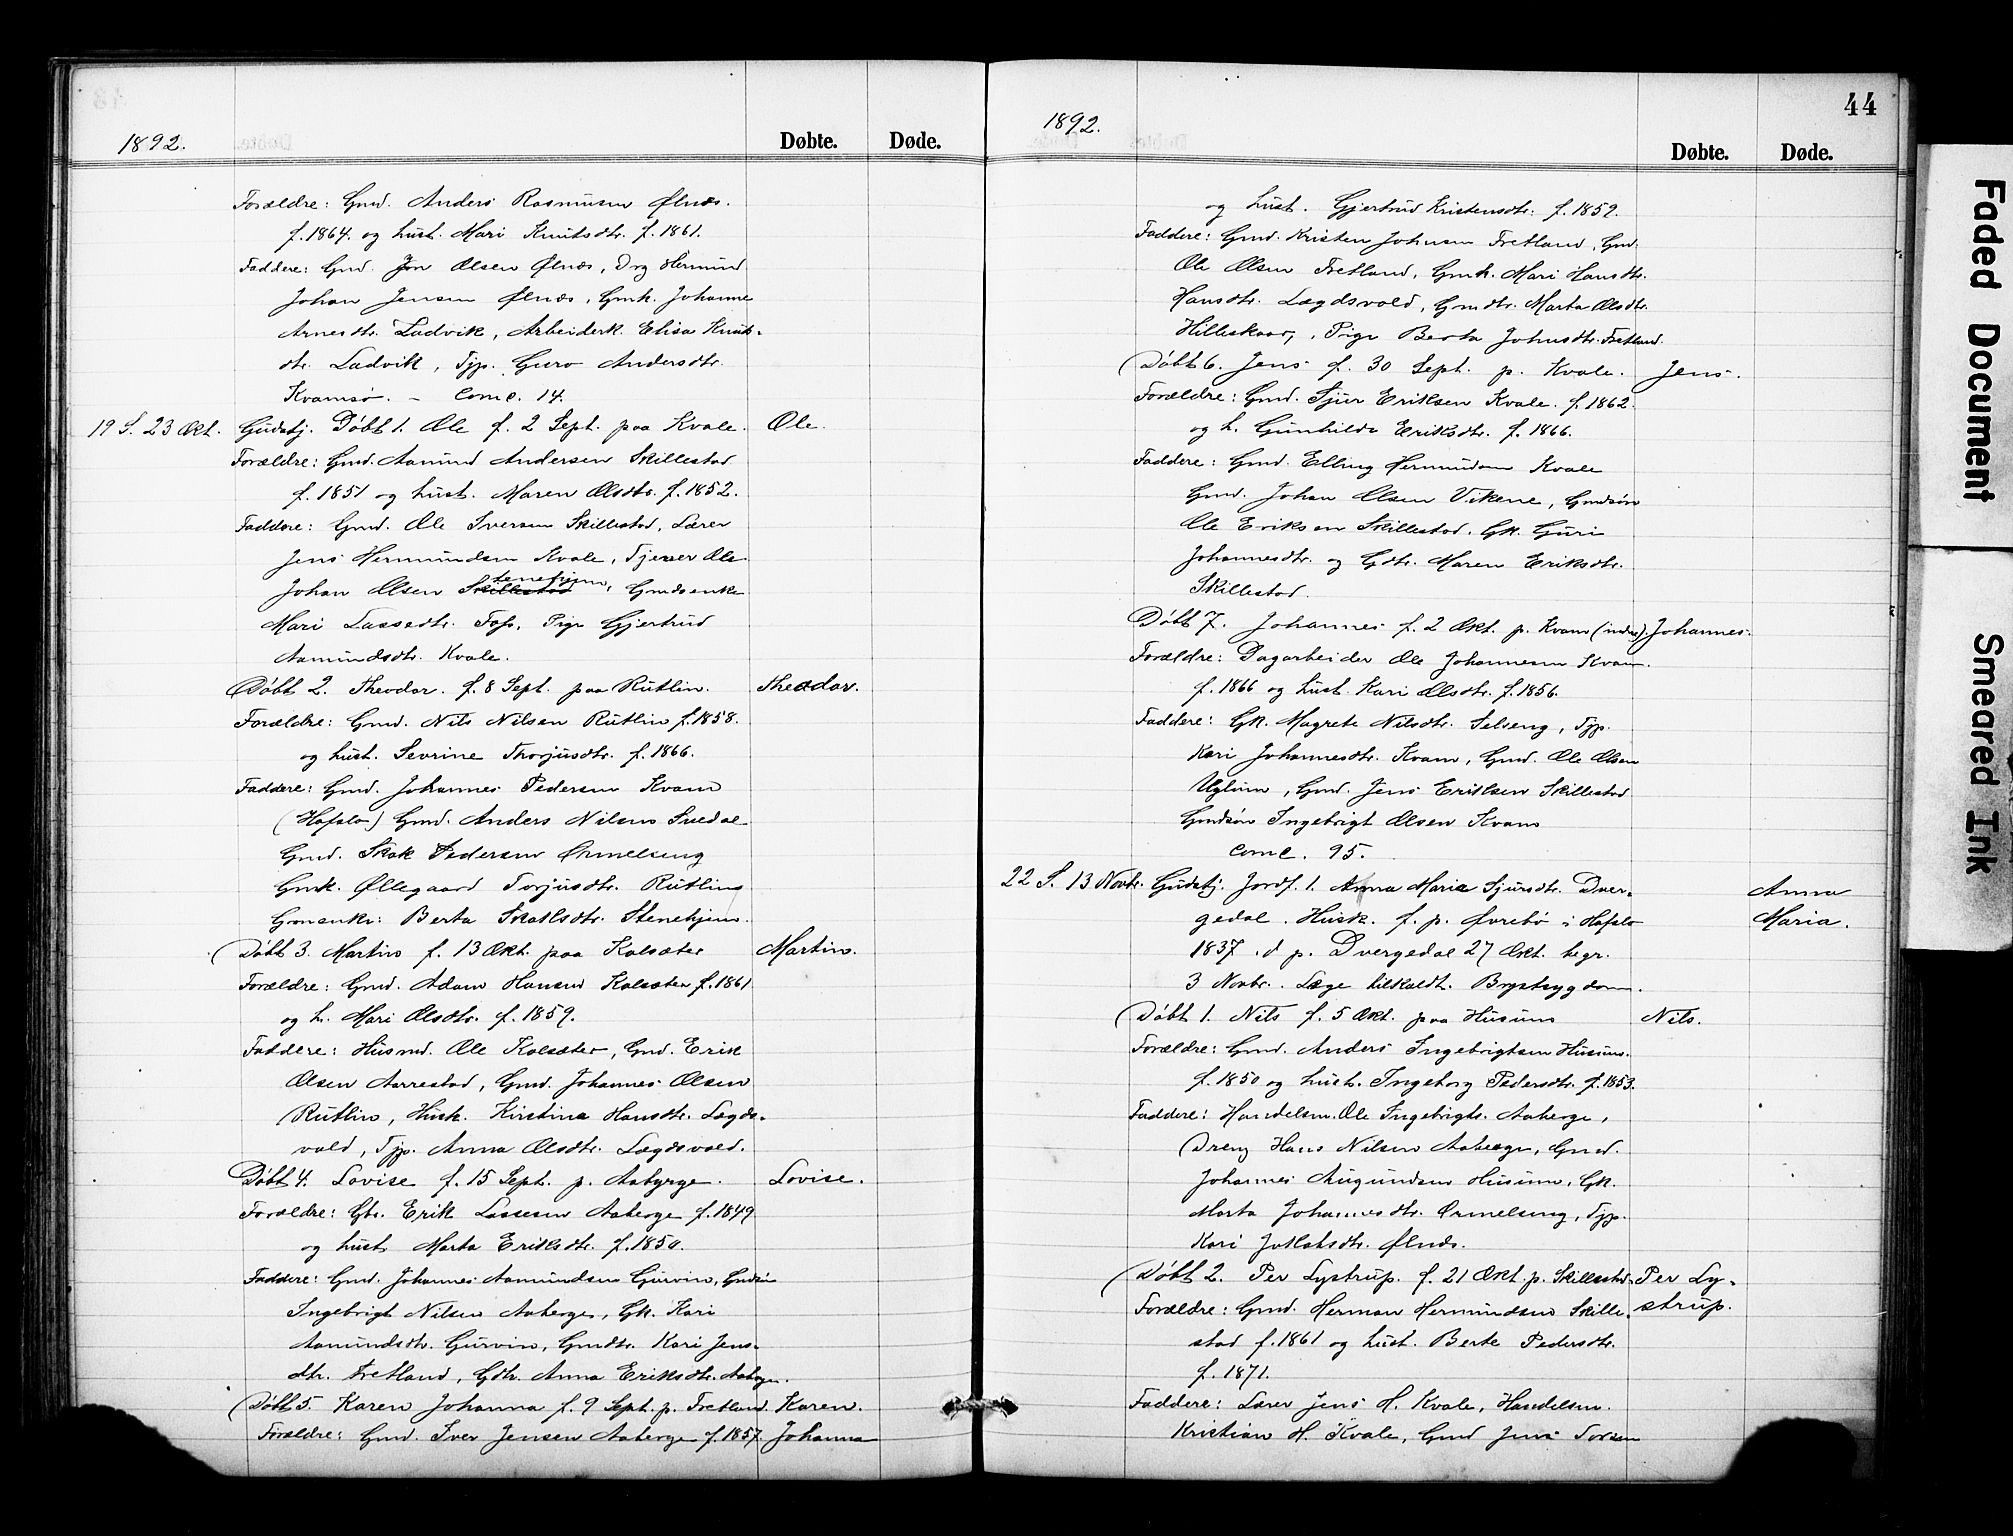 1892.
Døbte. Døde.
Forældre: Gmd. Anders Rasmusen Ølnæs.
f. 1864. og hust. Mari Knutsdtr. f. 1861.
Faddere: Gmd. Jon Olsen Ølnæs, Drg Hermund
Johan Jensen Ølnæs, Gmk. Johanne
Arnesdtr. Ladvik, Arbeiderk. Elisa Knuts-
dtr. Ladvik, Tjp. Guro Andersdtr.
Kvamsø. – Come. 14.
19 S. 23 Okt. Gudstj. Døbt 1. Ole f. 2 Sept. paa Kvale. Ole.
Forældre: Gmd. Aamund Andersen Skillestad
f. 1851 og hust. Maren Olsdtr. f. 1852.
Faddere: Gmd. Ole Iversen Skillestad, Lærer
Jens Hermundsen Kvale, Tjener Ole
Johan Olsen Skillestad Stenehjem, Gmdsenke
Mari Lassedtr. Foss, Pige Gjertrud
Aamundsdtr. Kvale.
Døbt 2. Theodor. f. 8 Sept. paa Rutlin. Theodor.
Forældre: Gmd. Nils Nilsen Rutlin f. 1858.
og hust. Sevrine Thorjusdtr. f. 1866.
Faddere: Gmd. Johannes Pedersen Kvam
(Hafslo) Gmd. Anders Nilsen Snedal
Gmd. Skak Pedersen Ormelseng
Gmk. Øllegaard Torjusdtr. Rutlin
Gmenke: Berta Skaksdtr. Stenehjem.
Døbt 3. Martin f. 13 Okt. paa Kalsæter Martin.
Forældre: Gmd. Adam Hansen Kalsæter f. 1861
og h. Mari Olsdtr. f. 1859.
Faddere: Husmd. Ole Kalsæter, Gmd. Erik
Olsen Aarrestad, Gmd. Johannes Olsen
Rutlin, Husk. Kirstina Hansdtr. Lægds-
vold, Tjp. Anna Olsdtr. Lægdsvold.
Døbt 4. Lovise f. 15 Sept. p. Aabyrge. Lovise.
Forældre: Gbr. Erik Lassesen Aaberge f. 1849
og hust Marta Eriksdtr. f. 1850.
Faddere: Gmd. Johannes Aamundsen Gurvin, Gmdsøn
Ingebrigt Nilsen Aaberge, Gk. Kari
Aamundsdtr. Gurvin, Gmdtr. Kari Jens-
dtr. Fretland, Gdtr. Anna Eriksdtr. Aaberge.
Døbt 5. Karen Johanna f. 9 Sept. p. Fretland. Karen
Forældre: Gmd. Iver Jensen Aaberge f. 1857. Johanna
44
1892.
Døbte. Døde.
og hust. Gjertrud Kristensdtr. f. 1859.
Faddere: Gmd. Kristen Johnsen Fretland, Gmd.
Ole Olsen Fretland, Gmk. Mari Hansdtr.
Hansdtr. Lægdsvold, Gmdtr. Marta Olsdtr.
Hilleskaar, Pige Berta Johnsdtr. Fretland.
Døbt 6. Jens f. 30 Sept. p. Kvale. Jens.
Forældre: Gmd. Sjur Eriksen Kvale. f. 1862.
og h. Gunhilde Eriksdtr. f. 1866.
Faddere: Gmd. Elling Hermundsen Kvale
Gmd. Johan Olsen Vikene, Gmdsøn
Ole Eriksen Skillestad. Gk. Guri
Johannesdtr. og Gdtr. Maren Eriksdtr.
Skillestad.
Døbt 7. Johannes f. 2 Okt. p. Kvam (indre). Johannes.
Forældre: Dagarbeider Ole Johannesen Kvam.
f. 1866 og hust. Kari Olsdtr. f. 1856.
Faddere: Gk. Magrete Nilsdtr. Selseng, Tjp.
Kari Johannesdtr. Kvam, Gmd. Ole Olsen
Uglum, Gmd. Jens Eriksen Skillestad
Gmdsøn Ingebrigt Olsen Kvam
Come. 95.
22 S. 13 Novbr. Gudstj. Jordf. 1. Anna Maria Sjursdtr. Dver- Anna
gedal. Husk. f. p. Øvrebø i Hafslo Maria.
1837. d p. Dvergedal 27 Okt. begr.
3 Novbr. Læge tilkaldt. Brystsygdom.
Døbt 1. Nils f. 5 Okt. paa Husum Nils.
Forældre: Gmd. Anders Ingebrigtsen Husum.
f. 1850 og hust. Ingeborg Pedersdtr. f. 1853.
Faddere: Handelsm. Ole Ingebrigts. Aaberge,
Dreng Hans Nilsen Aaberge, Gmd.
Johannes Augundsen Husum, Gk.
Marta Johannesdtr. Ormelseng, Tjp.
Kari Jotlatsdtr. Ølnæs.
Døbt 2. Per Lystrup. f. 21 Okt. p. Skillestad. Per Ly-
Forældre: Gmd. Herman Hermundsen Skille- strup.
stad f. 1861 og hust. Berte Pedersdtr.
f. 1871.
Faddere: Lærer Jens H. Kvale, Handelsm.
Kristian H. Kvale, Gmd Jens Torsen
Faded Document
Smeared Ink